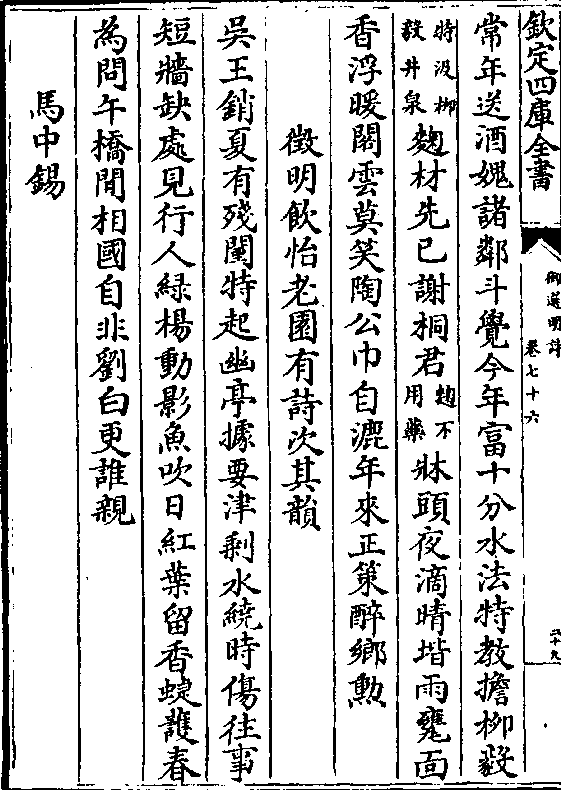 欽定四庫全書
御選明詩
卷七十六
二十九
常年送酒媿諸鄰斗覺今年富十分水法特教擔柳毅
特汲柳毅井泉麴材先已謝桐君麴不用藥牀頭夜滴晴堦雨甕面
香浮暖閣雲莫笑陶公巾自漉年來正策醉鄉勲
徵明飲怡老園有詩次其韻
吳王銷夏有殘闉特起幽亭據要津剩水繞時傷往事
短牆缺處見行人綠楊動影魚吹日紅葉留香蜨護春
為問午橋閒相國自非劉白更誰親
馬中錫